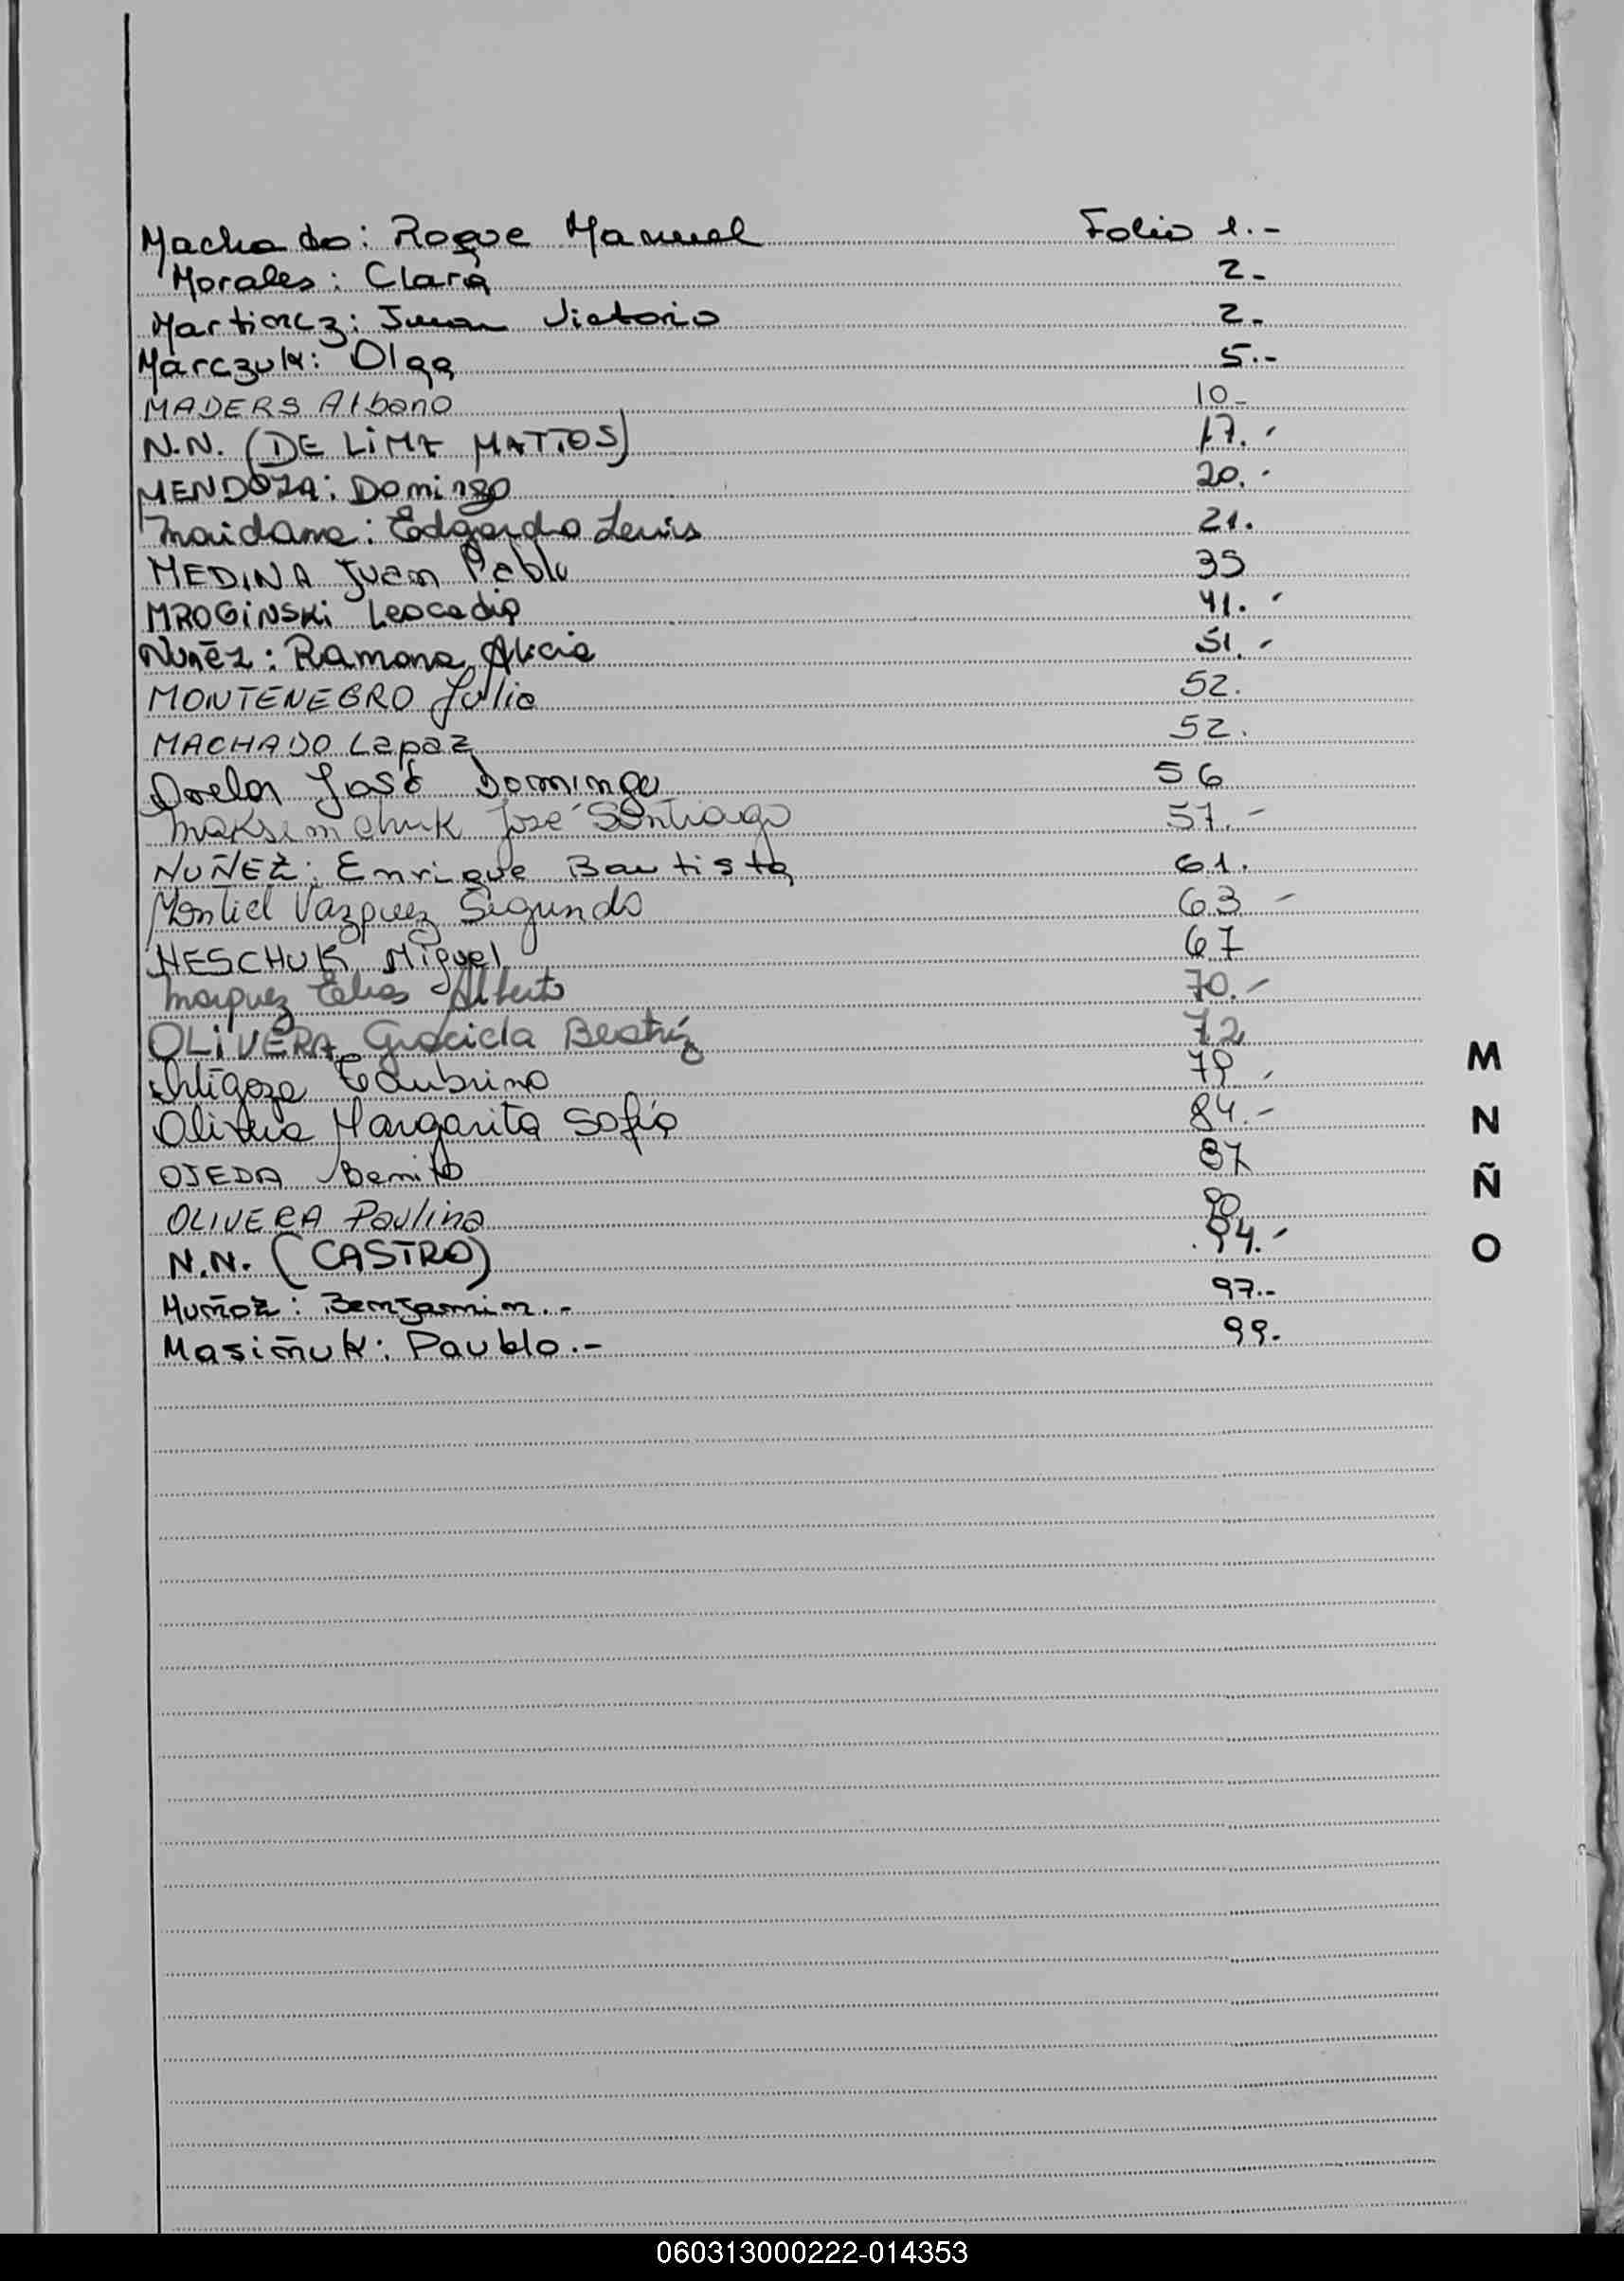 Machado: Roque Manuel Folio 1.-
Morales: Clara 2-
Martinez: Juan Victorio 2-
Marczuk: Olga 5.-
MADERS Albano 10-
N.N. (DE LIMA MATTOS) 17.-
MENDOZA: Domingo 20.-
Maidana: Edgardo Luis 21.
MEDINA Juan Pablo 35
MROGINSKI Leocadio 41.-
Nuñez: Ramona Alicia 51.-
MONTENEGRO Julio 52.
MACHADO Lapaz 52.
José Domingo 56
Maksimchuk José Santiago 57.-
NUÑEZ: Enrique Bautista 61.
Montiel Vazquez Segundo 63 -
NESCHUK Miguel 67
Marquez Elias Alberto 70.-
OLIVERA Graciela Beatríz 72
79 -
Olivera Margarita Sofía 84.-
OJEDA Benito 87
OLIVERA Paulina 90
N.N. (CASTRO) 94.-
Muñoz: Benjamin.- 97.-
Masiñuk: Paublo.- 99.
M
N
Ñ
O
060313000222-014353